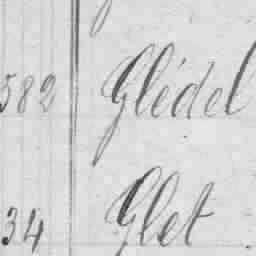 582 Glédel
34 Glet